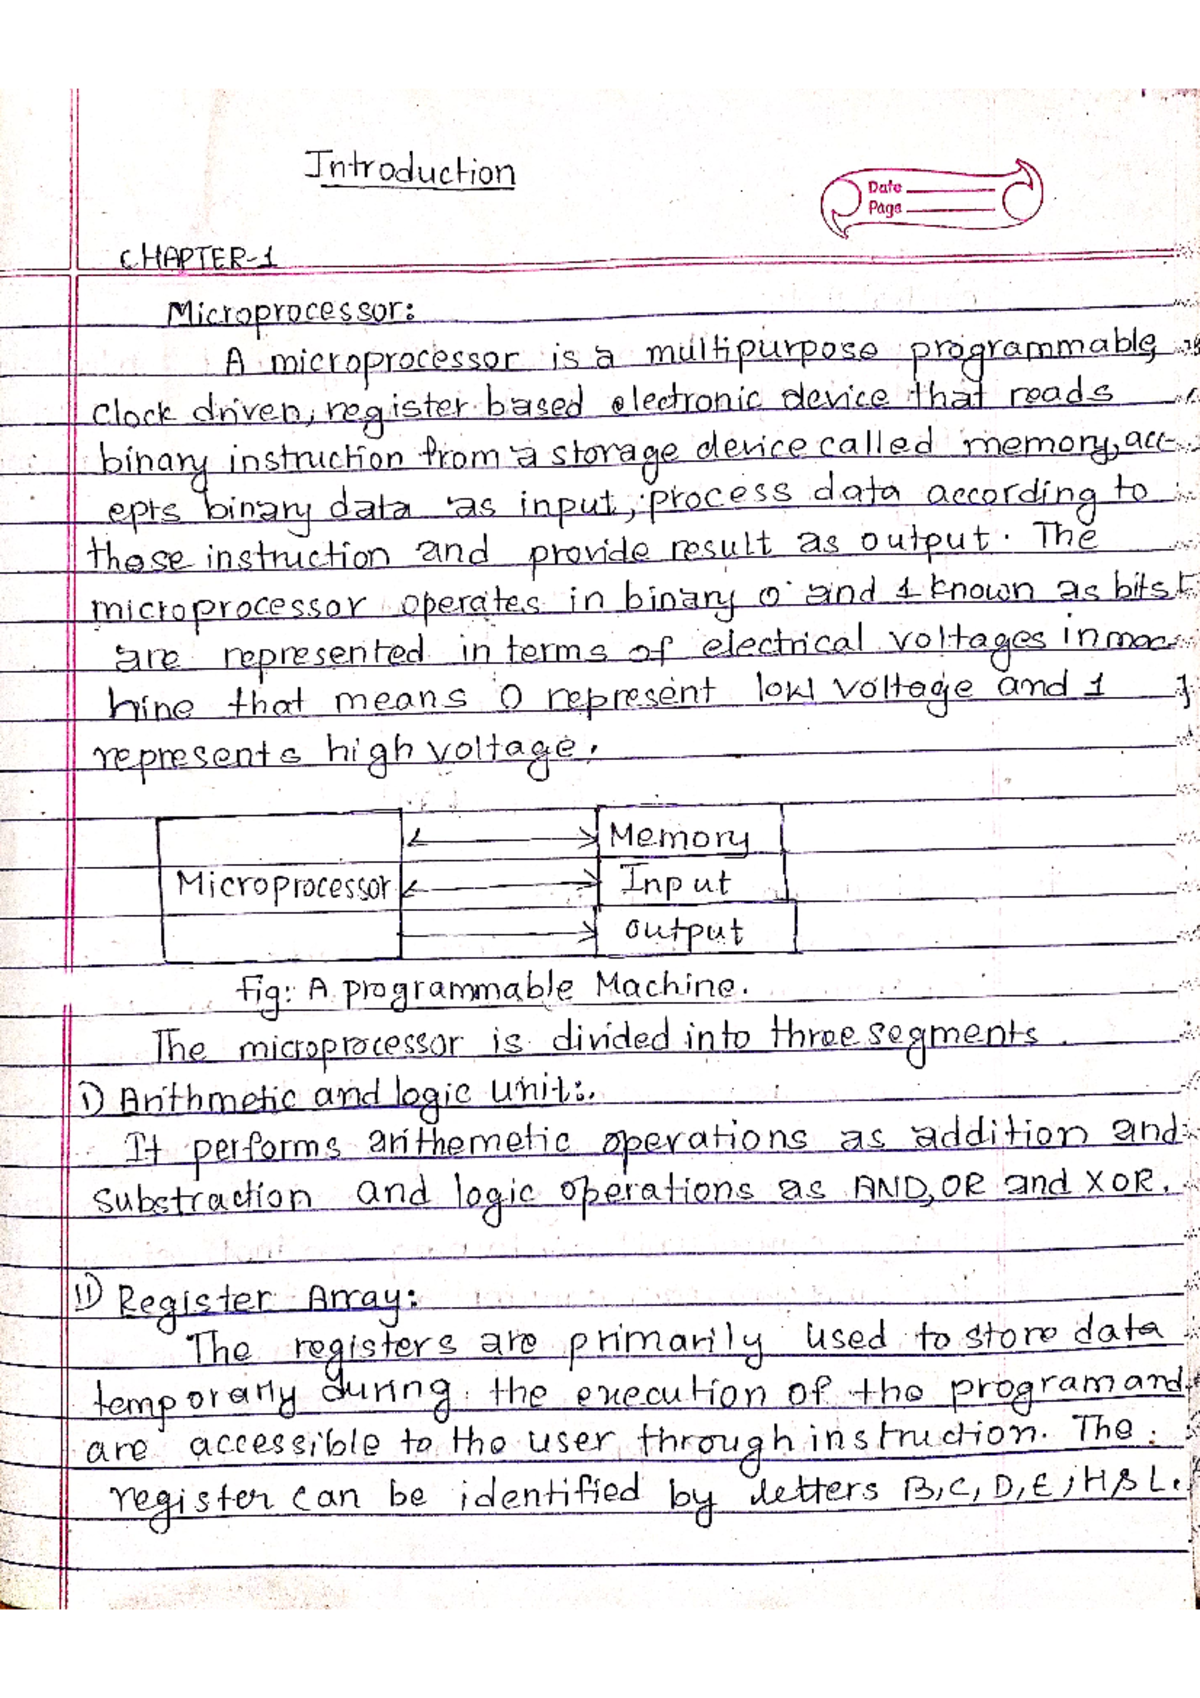 Introduction
Date
Page
CHAPTER-1
Microprocessor:
A microprocessor is a multipurpose programmable
clock driven, register based electronic device that reads
binary instruction from a storage device called memory, acc-
epts binary data as input, process data according to
those instruction and provide result as output. The
microprocessor operates in binary 0 and 1 known as bits
are represented in terms of electrical voltages in mac-
hine that means 0 represent low voltage and 1
represents high voltage.
Memory
Microprocessor Input
output
fig: A programmable Machine.
The microprocessor is divided into three segments.
i) Arithmetic and logic unit:.
It performs arithemetic operations as addition and
substraction and logic operations as AND, OR and XOR.
ii) Register Array:
The registers are primarily used to store data
temporarily during the execution of the program and
are accessible to the user through instruction. The
register can be identified by letters B, C, D, E, H & L.